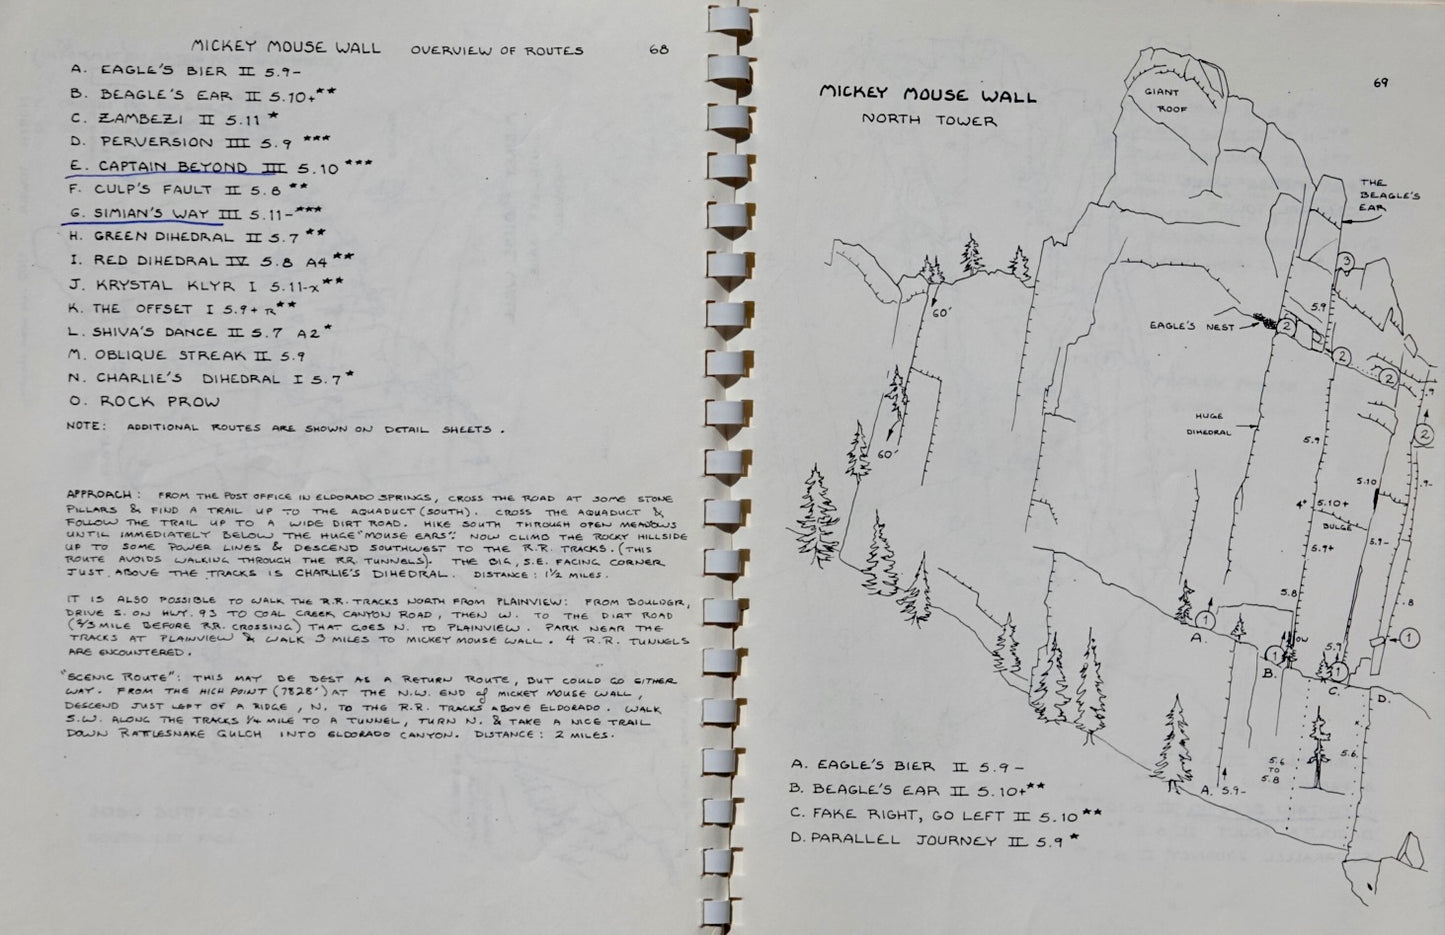 MICKEY MOUSE WALL OVERVIEW OF ROUTES 68
A. EAGLE'S BIER II 5.9-
B. BEAGLE'S EAR II 5.10+**
C. ZAMBEZI II 5.11 *
D. PERVERSION III 5.9 ***
E. CAPTAIN BEYOND III 5.10 ***
F. CULP'S FAULT II 5.8 **
G. SIMIAN'S WAY III 5.11-***
H. GREEN DIHEDRAL II 5.7 **
I. RED DIHEDRAL IV 5.8 A4**
J. KRYSTAL KLYR I 5.11-X**
K. THE OFFSET I 5.9+ R**
L. SHIVA'S DANCE II 5.7 A2*
M. OBLIQUE STREAK II 5.9
N. CHARLIE'S DIHEDRAL I 5.7*
O. ROCK PROW
NOTE: ADDITIONAL ROUTES ARE SHOWN ON DETAIL SHEETS.
APPROACH: FROM THE POST OFFICE IN ELDORADO SPRINGS, CROSS THE ROAD AT SOME STONE
PILLARS & FIND A TRAIL UP TO THE AQUADUCT (SOUTH). CROSS THE AQUADUCT &
FOLLOW THE TRAIL UP TO A WIDE DIRT ROAD. HIKE SOUTH THROUGH OPEN MEADOWS
UNTIL IMMEDIATELY BELOW THE HUGE "MOUSE EARS". NOW CLIMB THE ROCKY HILLSIDE
UP TO SOME POWER LINES & DESCEND SOUTHWEST TO THE R.R. TRACKS. (THIS
ROUTE AVOIDS WALKING THROUGH THE R.R. TUNNELS). THE BIG, S.E. FACING CORNER
JUST ABOVE THE TRACKS IS CHARLIE'S DIHEDRAL. DISTANCE: 1½ MILES.
IT IS ALSO POSSIBLE TO WALK THE R.R. TRACKS NORTH FROM PLAINVIEW: FROM BOULDER,
DRIVE S. ON HWY. 93 TO COAL CREEK CANYON ROAD, THEN W. TO THE DIRT ROAD
(⅔ MILE BEFORE R.R. CROSSING) THAT GOES N. TO PLAINVIEW. PARK NEAR THE
TRACKS AT PLAINVIEW & WALK 3 MILES TO MICKEY MOUSE WALL. 4 R.R. TUNNELS
ARE ENCOUNTERED.
"SCENIC ROUTE": THIS MAY BE BEST AS A RETURN ROUTE, BUT COULD GO EITHER
WAY. FROM THE HIGH POINT (7828') AT THE N.W. END of MICKEY MOUSE WALL,
DESCEND JUST LEFT OF A RIDGE, N. TO THE R.R. TRACKS ABOVE ELDORADO. WALK
S.W. ALONG THE TRACKS ¼ MILE TO A TUNNEL, TURN N. & TAKE A NICE TRAIL
DOWN RATTLESNAKE GULCH INTO ELDORADO CANYON. DISTANCE: 2 MILES.
69
MICKEY MOUSE WALL
NORTH TOWER
GIANT
ROOF
THE
BEAGLE'S
EAR
3
60'
5.9
EAGLE'S NEST
2
2
2
.9
HUGE
DIHEDRAL
2
60'
5.9
5.10
.9-
4"
5.10+
BULGE
5.9+
5.9-
5.8
.8
1
A.
1
5.9
1
B.
1
C.
D.
5.6
5.6
TO
5.8
A. 5.9-
A. EAGLE'S BIER II 5.9-
B. BEAGLE'S EAR II 5.10+**
C. FAKE RIGHT, GO LEFT II 5.10**
D. PARALLEL JOURNEY II 5.9 *